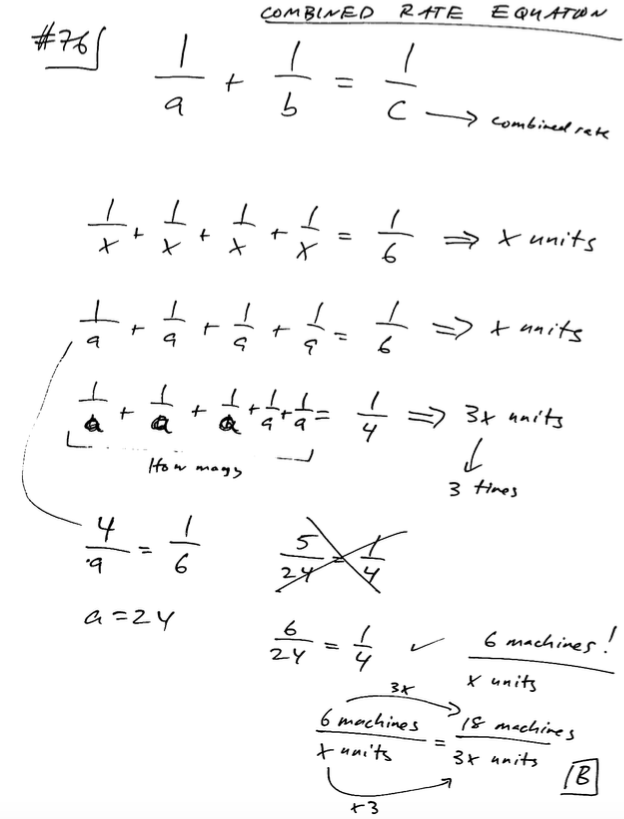 COMBINED RATE EQUATION
#76
1/a + 1/b = 1/c → combined rate
1/x + 1/x + 1/x + 1/x = 1/6 ⇒ x units
1/a + 1/a + 1/a + 1/a = 1/6 ⇒ x units
1/a + 1/a + 1/a + 1/a + 1/a = 1/4 ⇒ 3x units
How many
3 times
4/a = 1/6
5/24 = 1/4
a = 24
6/24 = 1/4 ✓ 6 machines!
x units
3x
6 machines / x units = 18 machines / 3x units
x3
B